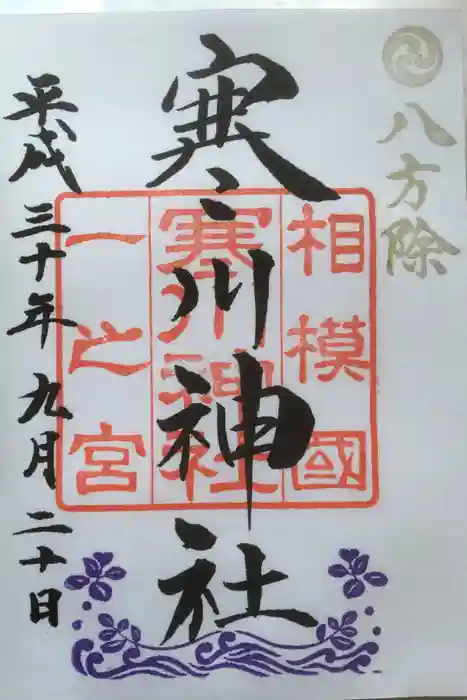 八方除
相模國
寒川神社
一之宮
寒川神社
平成三十年九月二十日